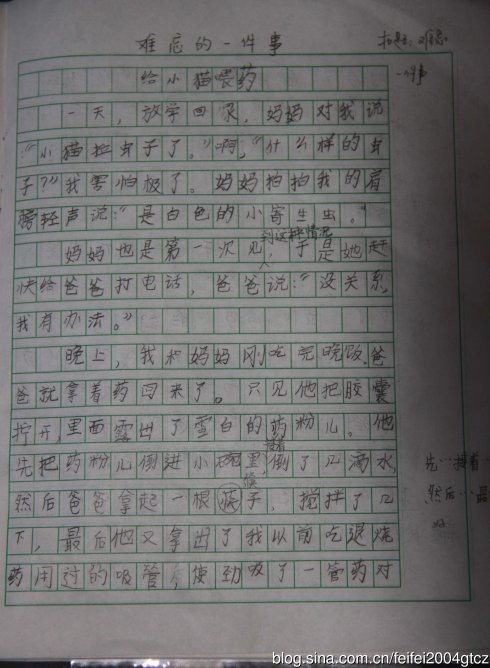 难忘的一件事
扣题：难忘
一件事
给小猫喂药
一天，放学回家，妈妈对我说
：“小猫拉虫子了。”啊，“什么样的虫
子？”我害怕极了。妈妈拍拍我的肩
膀轻声说：“是白色的小寄生虫。”
到这种情况
妈妈也是第一次见，于是她赶
快给爸爸打电话，爸爸说：“没关系，
我有办法。”
晚上，我和妈妈刚吃完晚饭，爸
爸就拿着药回来了。只见他把胶囊
拧开，里面露出了雪白的药粉儿。他
接着
先把药粉儿倒进小碗里，倒了几滴水，
然后爸爸拿起一根筷子，搅拌了几
下，最后他又拿出了我以前吃退烧
药用过的吸管，使劲吸了一管药对
先…接着
然后…最
blog.sina.com.cn/feifei2004gtcz